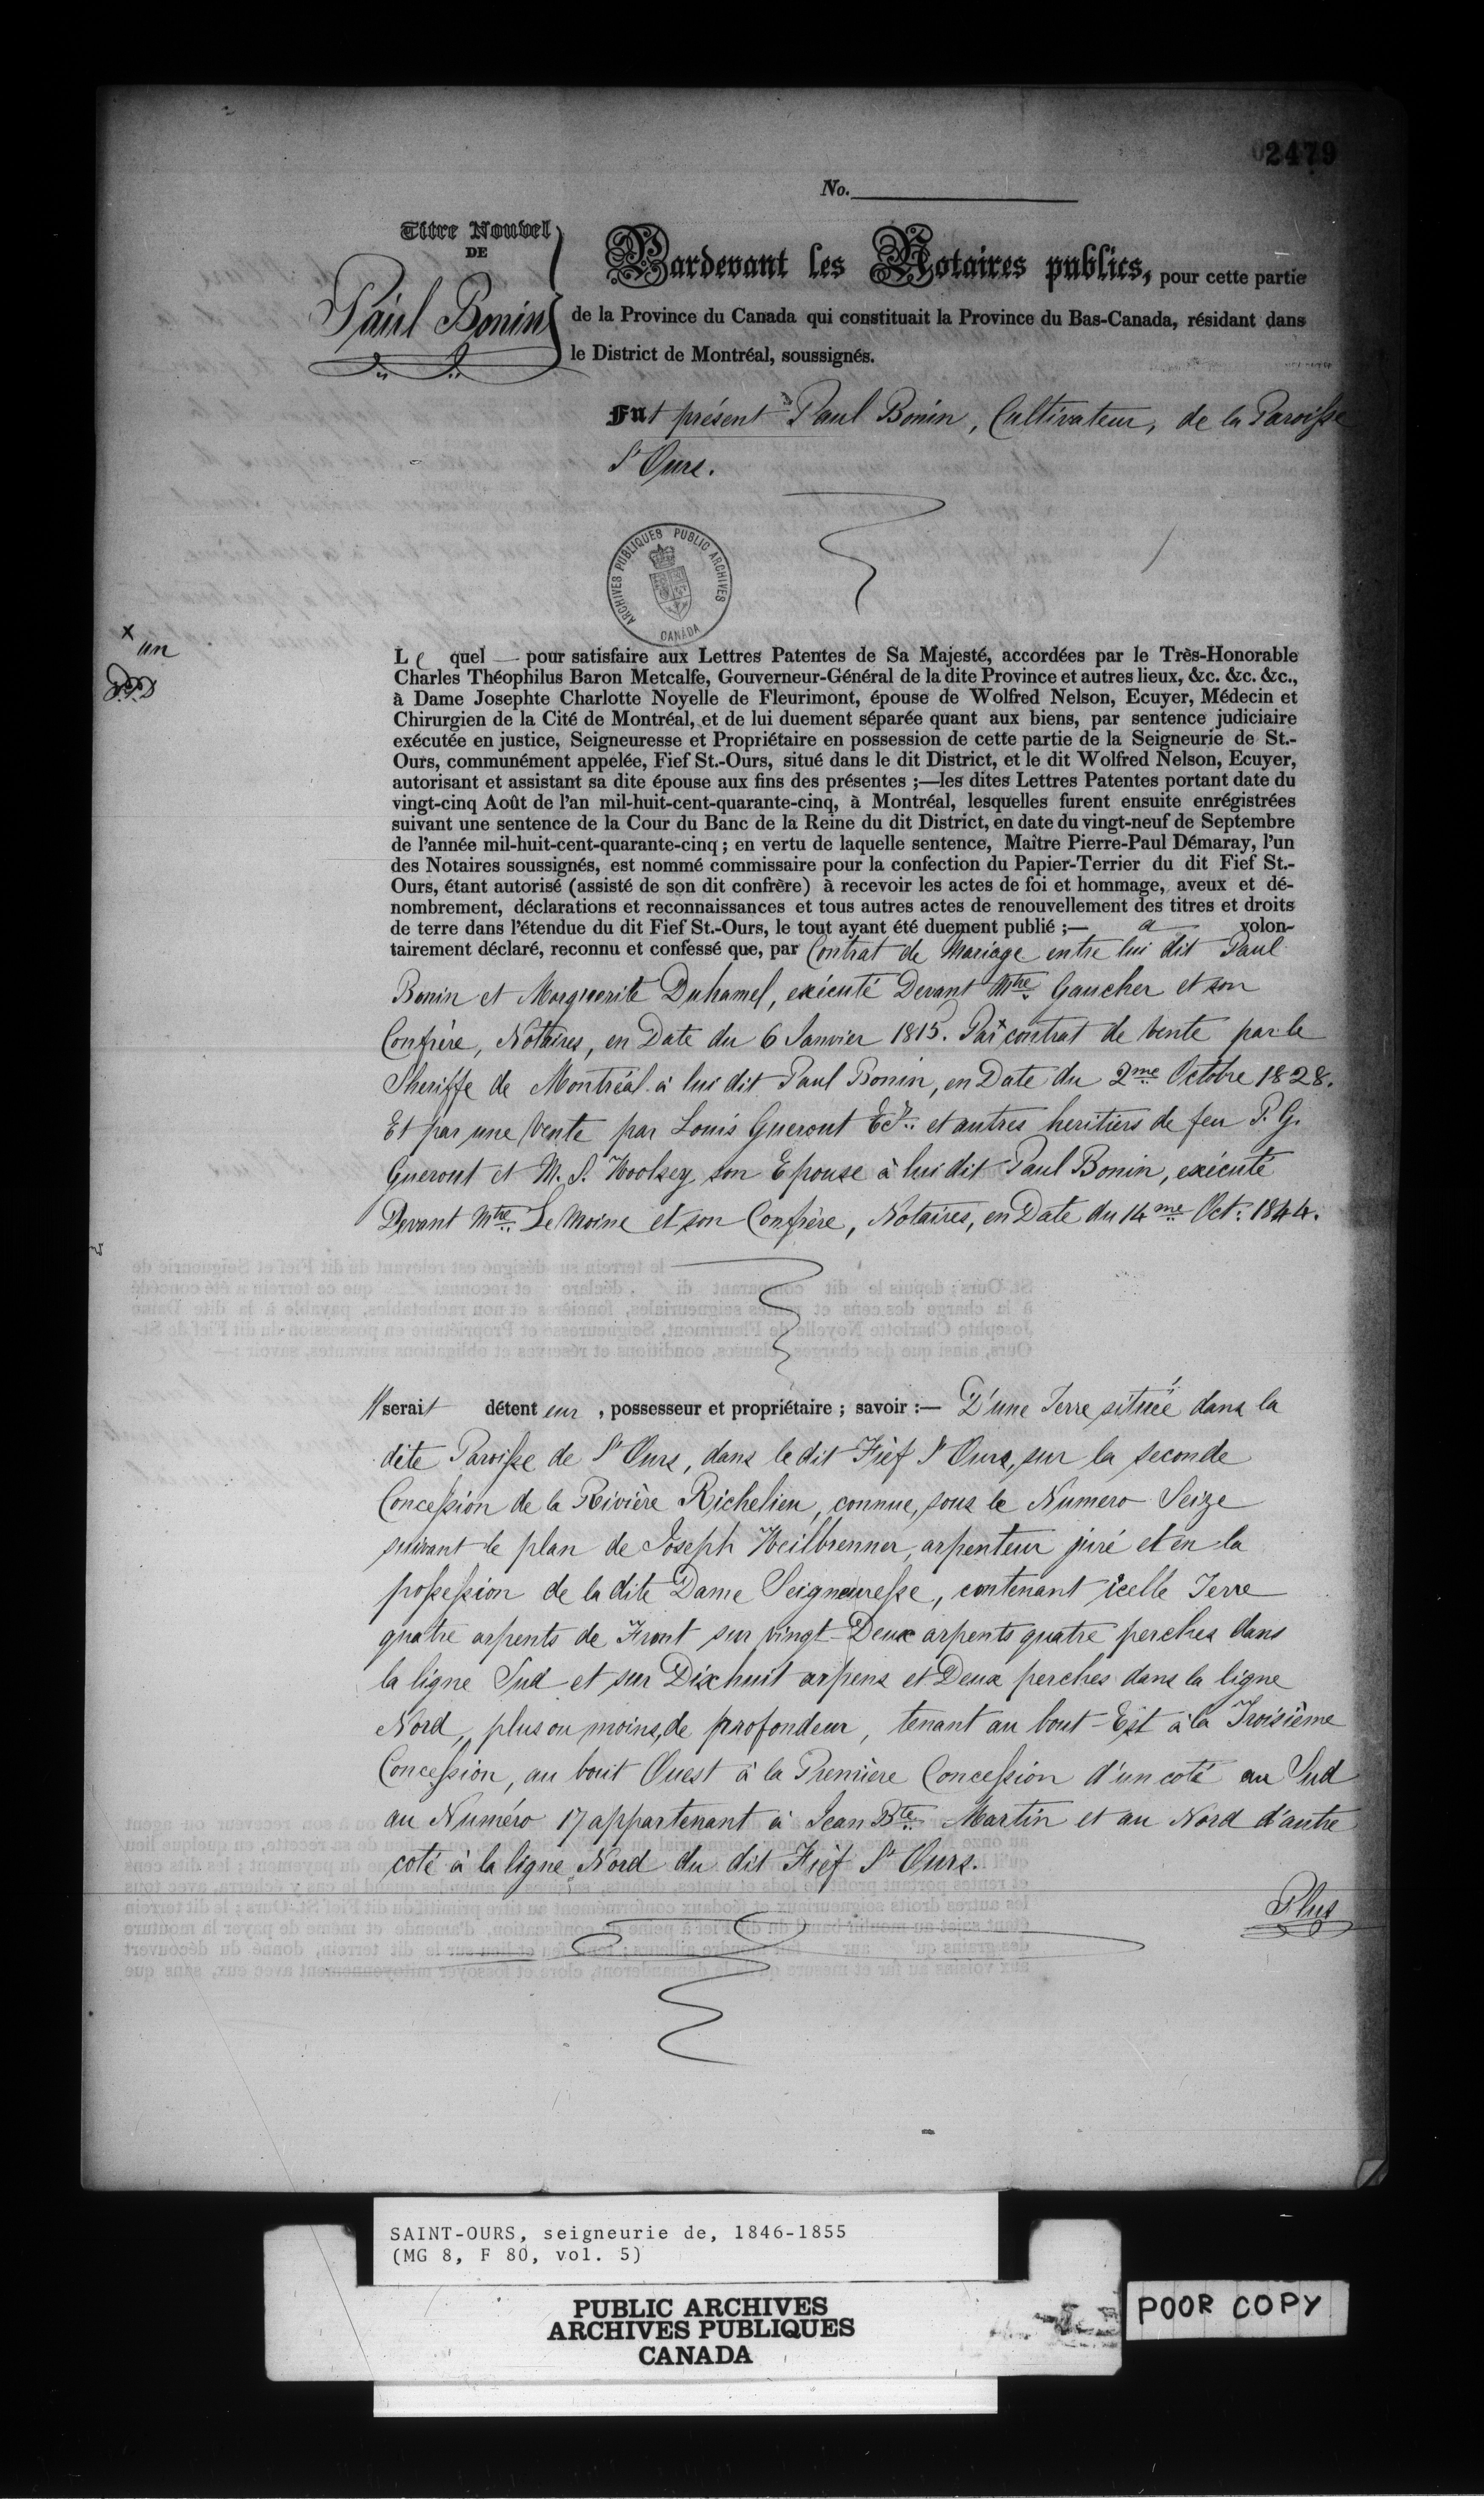 2479
No.
Titre Nouvel
DE
Paul Bonin
Pardevant les Notaires publics, pour cette partie
de la Province du Canada qui constituait la Province du Bas-Canada, résidant dans
le District de Montréal, soussignés.
Fut présent Paul Bonin, Cultivateur, de la Paroisse
St Ours.
ARCHIVES PUBLIQUES PUBLIC ARCHIVES
CANADA
x un
Le quel — pour satisfaire aux Lettres Patentes de Sa Majesté, accordées par le Très-Honorable
Charles Théophilus Baron Metcalfe, Gouverneur-Général de la dite Province et autres lieux, &c. &c. &c.,
à Dame Josephte Charlotte Noyelle de Fleurimont, épouse de Wolfred Nelson, Ecuyer, Médecin et
Chirurgien de la Cité de Montréal, et de lui duement séparée quant aux biens, par sentence judiciaire
exécutée en justice, Seigneuresse et Propriétaire en possession de cette partie de la Seigneurie de St.-
Ours, communément appelée, Fief St.-Ours, situé dans le dit District, et le dit Wolfred Nelson, Ecuyer,
autorisant et assistant sa dite épouse aux fins des présentes ;—les dites Lettres Patentes portant date du
vingt-cinq Août de l'an mil-huit-cent-quarante-cinq, à Montréal, lesquelles furent ensuite enrégistrées
suivant une sentence de la Cour du Banc de la Reine du dit District, en date du vingt-neuf de Septembre
de l'année mil-huit-cent-quarante-cinq ; en vertu de laquelle sentence, Maître Pierre-Paul Démaray, l'un
des Notaires soussignés, est nommé commissaire pour la confection du Papier-Terrier du dit Fief St.-
Ours, étant autorisé (assisté de son dit confrère) à recevoir les actes de foi et hommage, aveux et dé-
nombrement, déclarations et reconnaissances et tous autres actes de renouvellement des titres et droits
de terre dans l'étendue du dit Fief St.-Ours, le tout ayant été duement publié ;— a volon-
tairement déclaré, reconnu et confessé que, par Contrat de Mariage entre lui dit Paul
Bonin et Marguerite Duhamel, exécuté Devant Mtre Gaucher et son
Confrère, Notaires, en Date du 6 Janvier 1815. Par x contrat de vente par le
Sheriffe de Montréal à lui dit Paul Bonin, en Date du 2me Octobre 1828.
Et par une Vente par Louis Guerout Ecr. et autres heritiers de feu P. G.
Guerout et M. S. Woolsey son Epouse à lui dit Paul Bonin, exécuté
Devant Mtre Le Moine et son Confrère, Notaires, en Date du 14me Oct: 1844.
Il serait détenteur, possesseur et propriétaire ; savoir :— D'une Terre située dans la
dite Paroisse de St Ours, dans le dit Fief St Ours, sur la seconde
Concession de la Rivière Richelieu, connue, sous le Numero Seize
suivant le plan de Joseph Weilbrenner, arpenteur juré et en la
possession de la dite Dame Seigneuresse, contenant icelle Terre
quatre arpents de Front sur vingt-Deux arpents quatre perches dans
la ligne Sud et sur Dix huit arpens et Deux perches dans la ligne
Nord, plus ou moins, de profondeur, tenant au bout Est à la Troisième
Concession, au bout Ouest à la Première Concession d'un coté au Sud
au Numéro 17 appartenant à Jean Bte Martin et au Nord d'autre
coté à la ligne Nord du dit Fief St Ours.
Plus
SAINT-OURS, seigneurie de, 1846-1855
(MG 8, F 80, vol. 5)
PUBLIC ARCHIVES
ARCHIVES PUBLIQUES
CANADA
POOR COPY